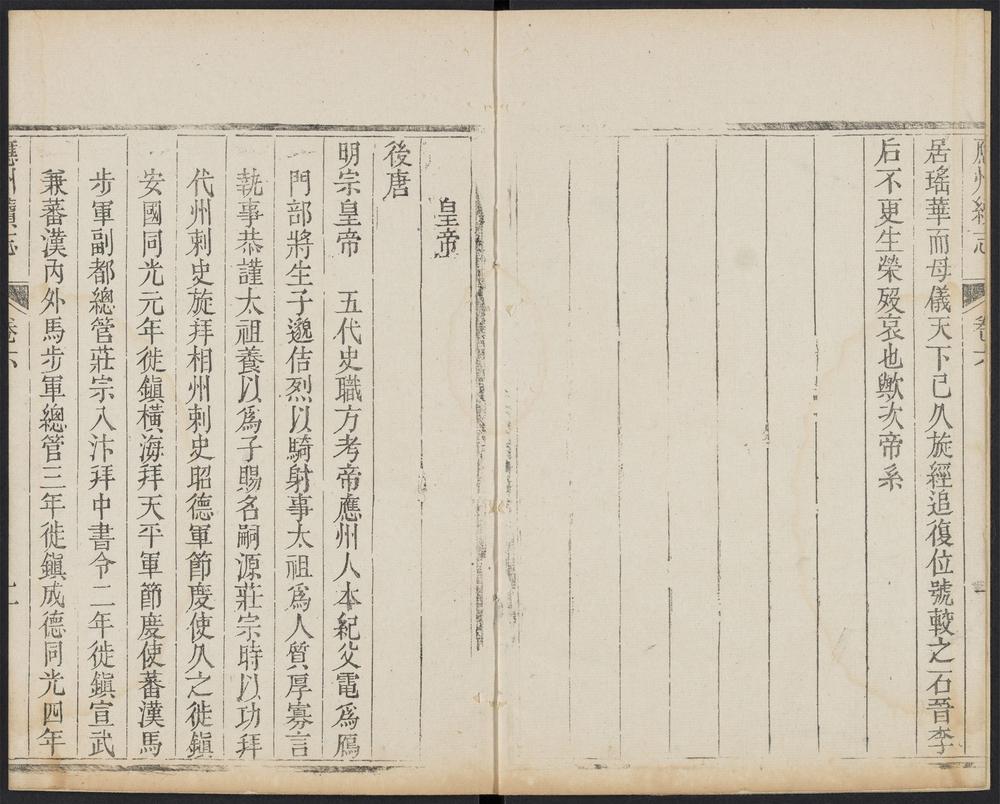 應州續志
卷六
居瑤華而母儀天下已久旋經追復位號較之石晉李
后不更生榮歿哀也歟次帝系
皇帝
後唐
明宗皇帝　五代史職方考帝應州人本紀父電爲鴈
門部將生子邈佶烈以騎射事太祖爲人質厚寡言
執事恭謹太祖養以爲子賜名嗣源莊宗時以功拜
代州刺史旋拜相州刺史昭德軍節度使久之徙鎭
安國同光元年徙鎭橫海拜天平軍節度使蕃漢馬
步軍副都總管莊宗入汴拜中書令二年徙鎭宣武
兼蕃漢內外馬步軍總管三年徙鎭成德同光四年
應州續志
卷六